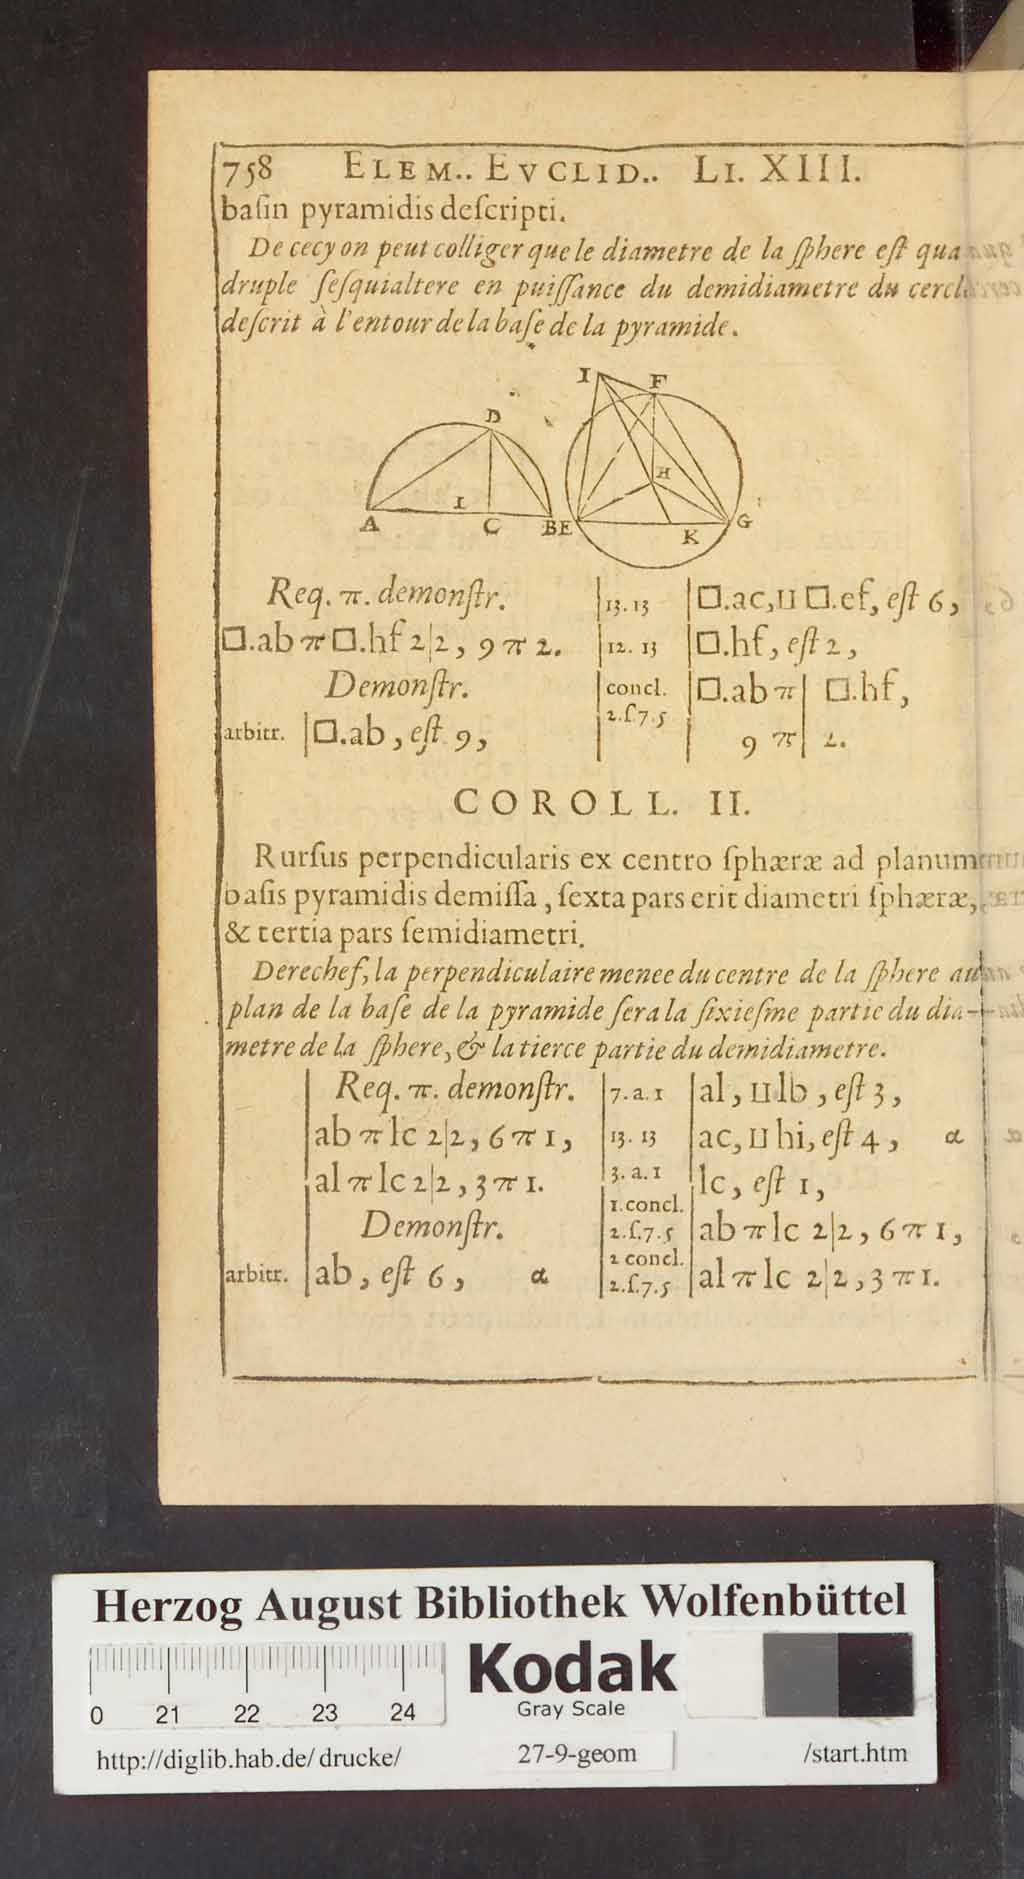 758 ELEM.. EVCLID.. LI. XIII.
baſin pyramidis deſcripti.
De cecy on peut colliger que le diametre de la ſphere eſt qua
druple ſeſquialtere en puiſſance du demidiametre du cercl
deſcrit à l'entour de la baſe de la pyramide.
I F
D
H
I
A C B E K G
Req. π. demonſtr.
□.ab π □.hf 2|2, 9 π 2.
Demonſtr.
arbitr. | □.ab, eſt 9,
13.13 | □.ac, ⊔ □.ef, eſt 6,
12.13 | □.hf, eſt 2,
concl. | □.ab π | □.hf,
2.ſ.7.5 | 9 π | 2.
COROLL. II.
Rurſus perpendicularis ex centro ſphæræ ad planum
baſis pyramidis demiſſa, ſexta pars erit diametri ſphæræ,
& tertia pars ſemidiametri.
Derechef, la perpendiculaire menee du centre de la ſphere au
plan de la baſe de la pyramide ſera la ſixieſme partie du dia-
metre de la ſphere, & la tierce partie du demidiametre.
Req. π. demonſtr.
ab π lc 2|2, 6 π 1,
al π lc 2|2, 3 π 1.
Demonſtr.
arbitr. | ab, eſt 6, α
7.a.1 | al, ⊔ lb, eſt 3,
13.13 | ac, ⊔ hi, eſt 4, α
3.a.1 | lc, eſt 1,
1.concl.
2.ſ.7.5 | ab π lc 2|2, 6 π 1,
2 concl.
2.ſ.7.5 | al π lc 2|2, 3 π 1.
Herzog August Bibliothek Wolfenbüttel
0 21 22 23 24
Kodak
Gray Scale
http://diglib.hab.de/drucke/ 27-9-geom /start.htm